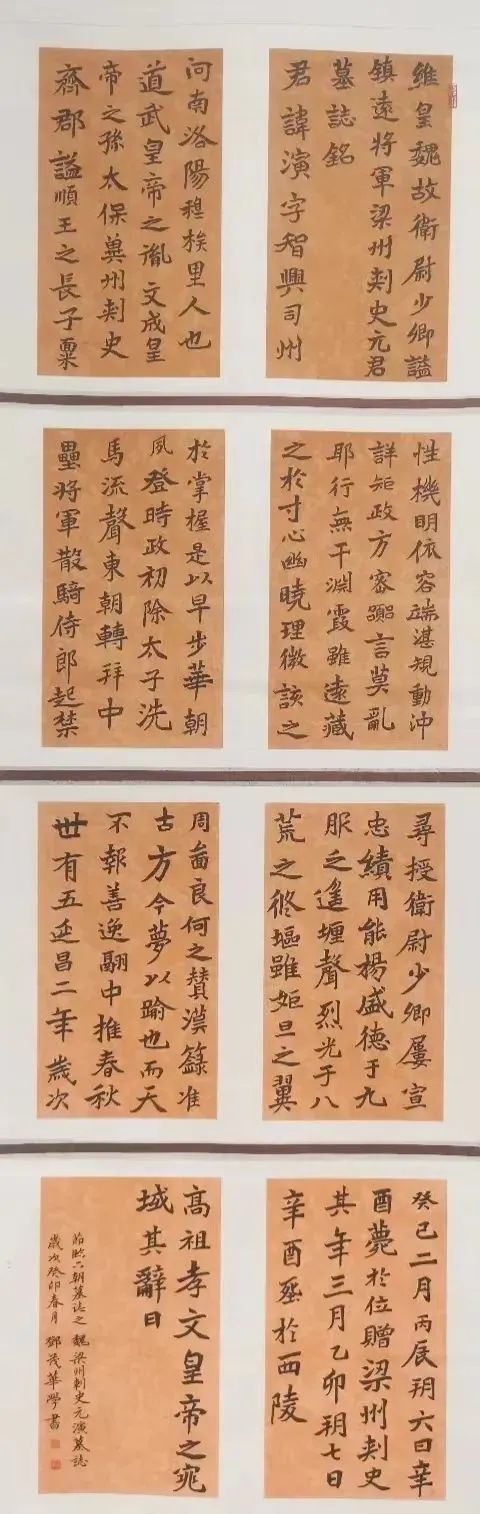 維皇魏故衛尉少卿謚
鎮遠將軍梁州刺史元君
墓誌銘
君諱演字智興司州
河南洛陽穆族里人也
道武皇帝之胤文成皇
帝之孫太保冀州刺史
齊郡謚順王之長子稟
性機明依容端湛規動沖
詳矩政方密蹈言莫亂
耶行無干淵霞雖遠藏
之於寸心幽曉理微該之
於掌握是以早步華朝
夙登時政初除太子洗
馬流聲東朝轉拜中
壘將軍散騎侍郎起禁
尋授衛尉少卿屢宣
忠績用能揚盛德于九
服之遙壃聲烈光于八
荒之脩塸雖姬旦之翼
周啚良何之贊漢籙准
古方今夢以踰也而天
不報善逸翮中摧春秋
丗有五延昌二年歲次
癸巳二月丙辰玥六日辛
酉薨於位贈梁州刺史
其年三月乙卯玥七日
辛酉𦵏於西陵
高祖孝文皇帝之𡨚
域其辭曰
節臨六朝墓誌之魏梁州刺史元演墓誌
歲次癸卯春月 鄧茂華學書